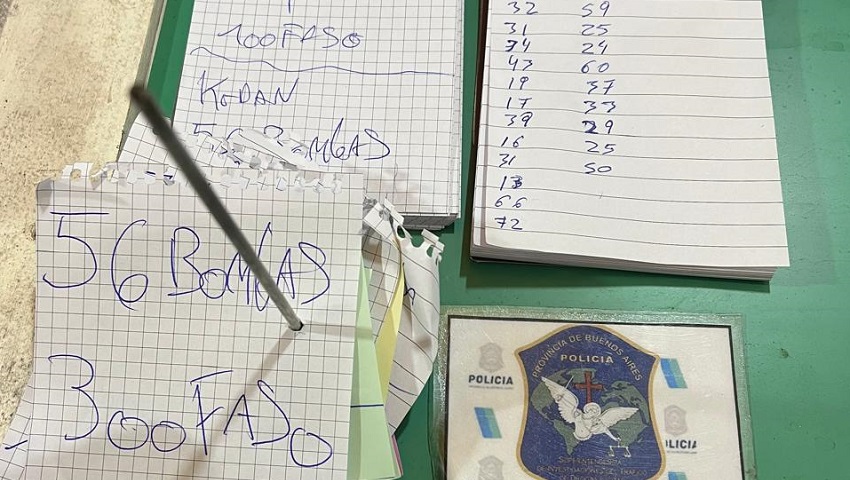 100 FASO
KODAN
56 BOMBAS
56 BOMBAS
300 FASO
32 59
31 25
34 24
43 60
19 37
17 33
39 29
16 25
31 50
13
66
72
PROVINCIA DE BUENOS AIRES
POLICIA
POLICIA
POLICIA
SUPERINTENDENCIA
DE INVESTIGACIONES DEL TRAFICO